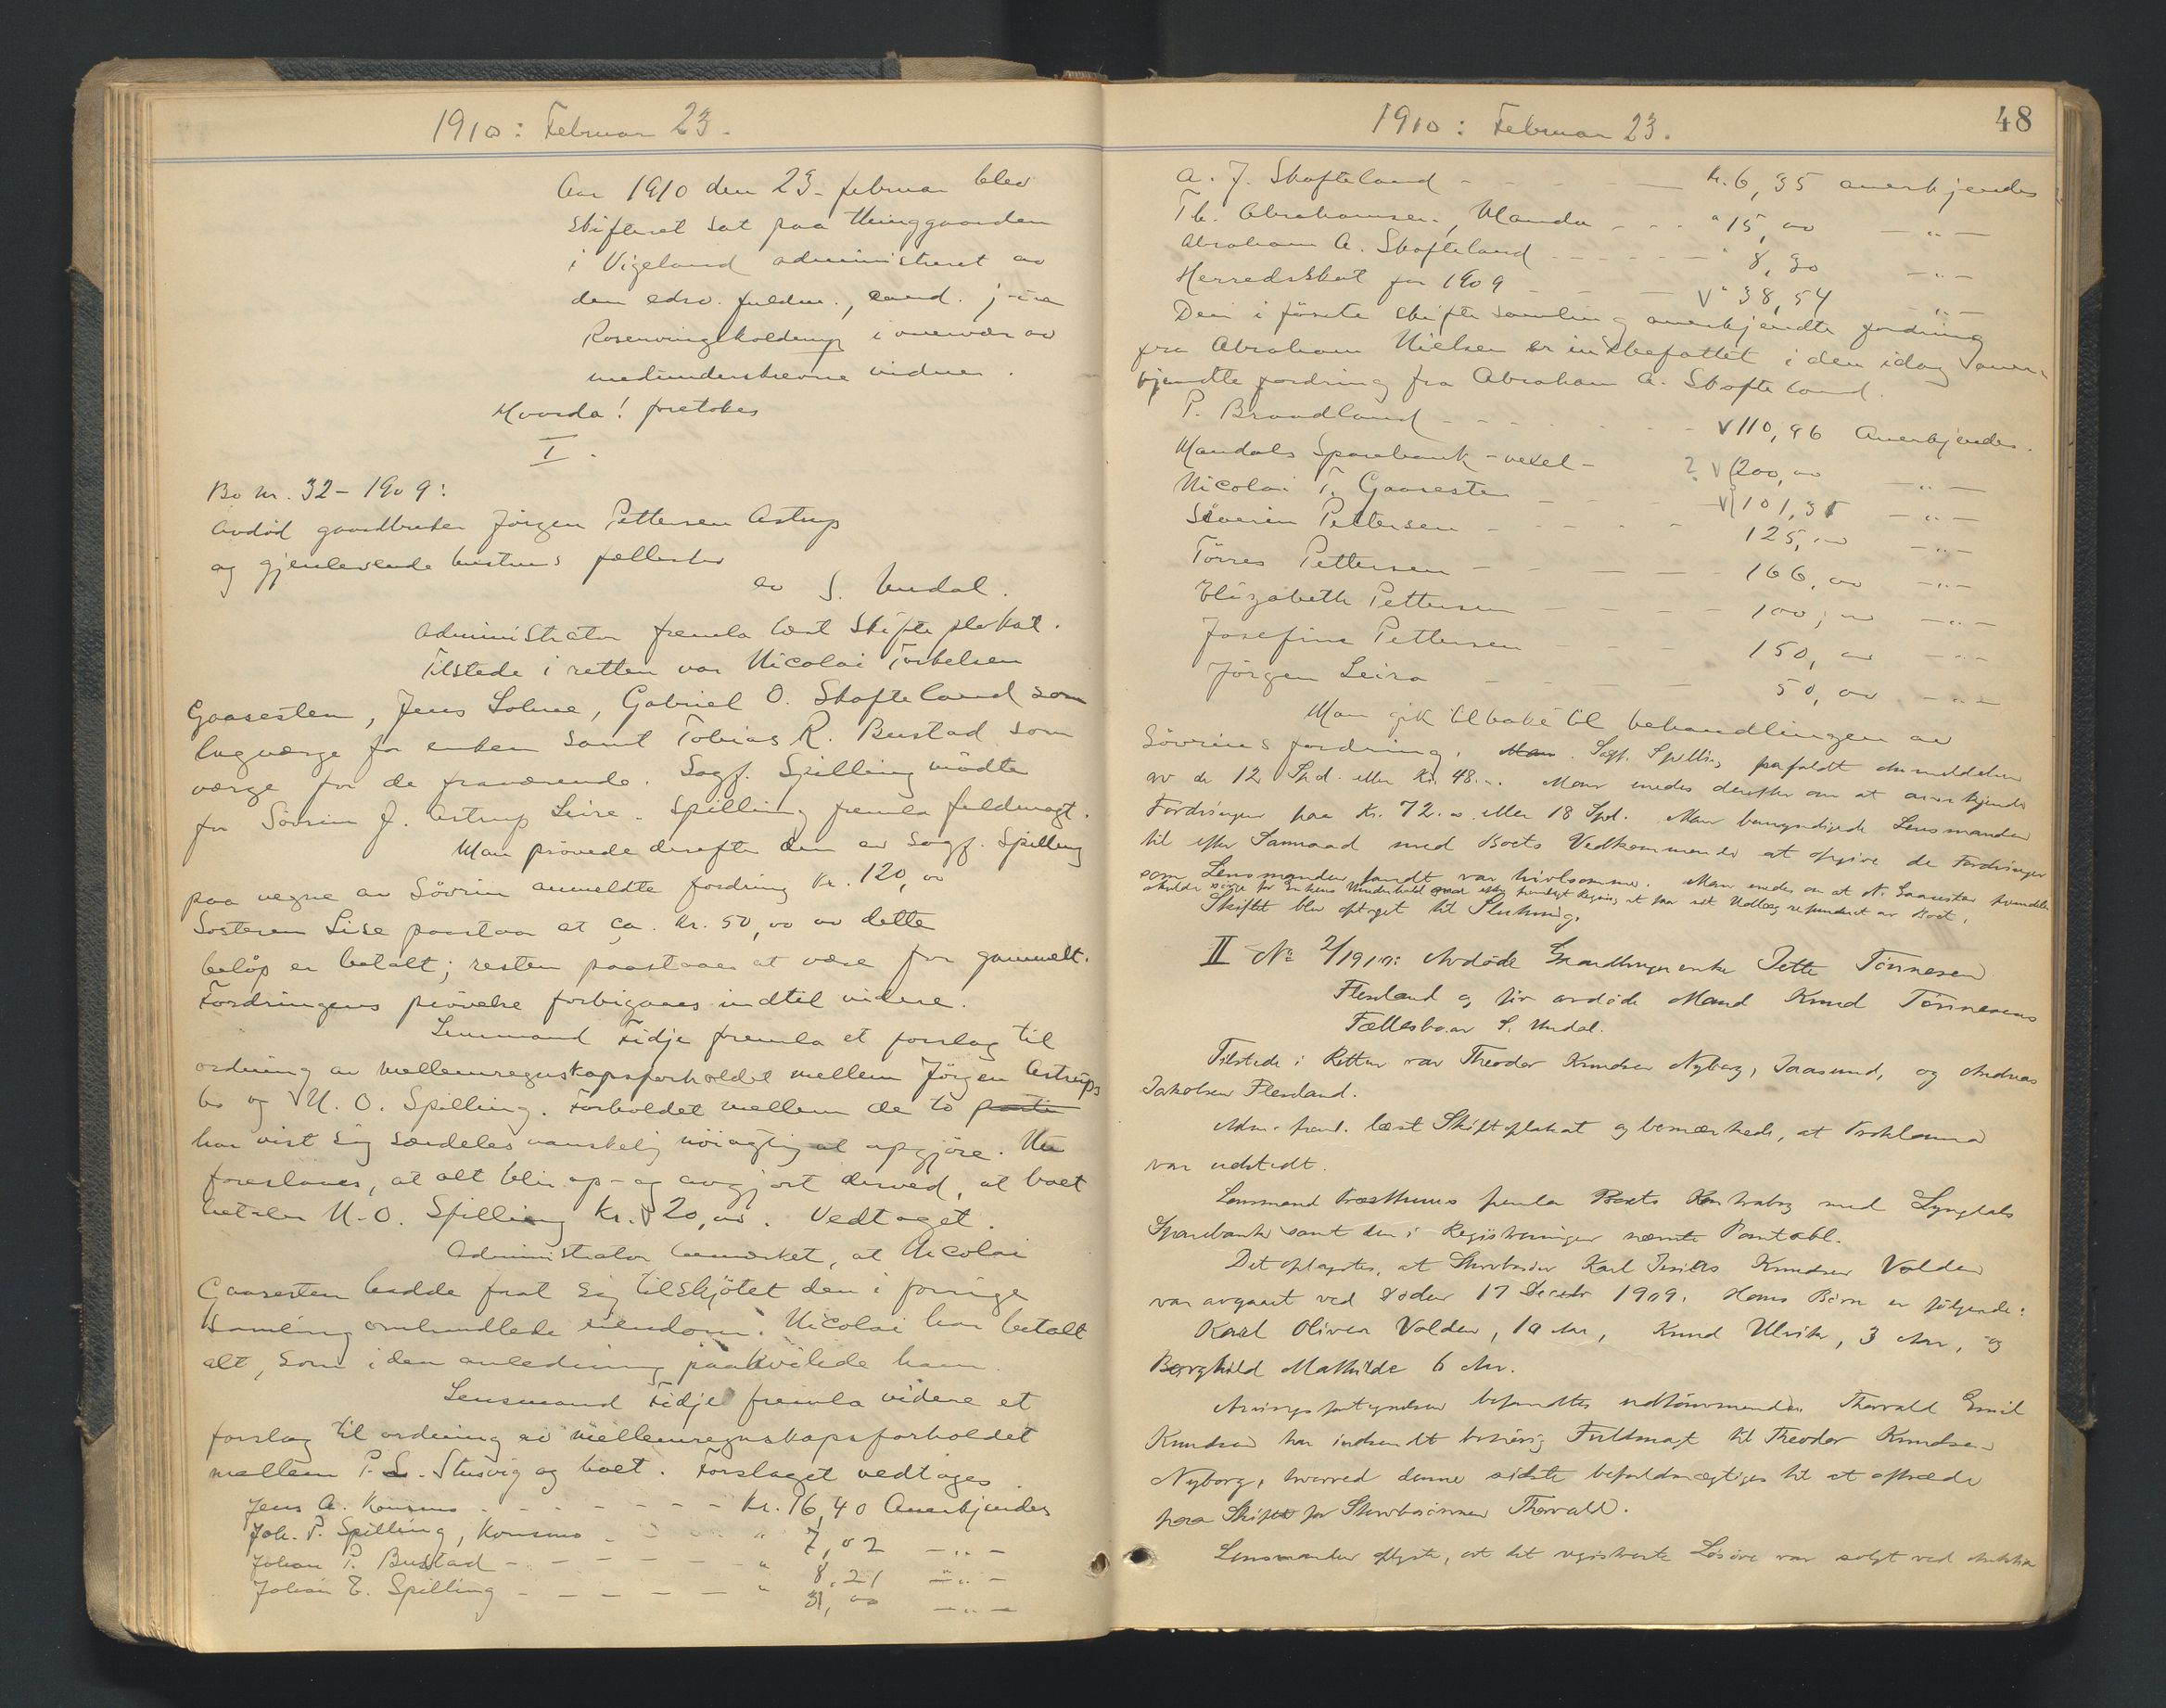 1910: Februar 23.
Aar 1910 den 23. februar blev
skifteret sat paa thinggaarden
i Vigeland administreret av
den edsv. fuldm., cand. jur
i overvær av
medunderskrevne vidner.
Hvorda! foretokes
I.
Bo nr. 32 - 1909:
Avdød gaardbruker Jörgen Pettersen Astrup
og gjenlevende hustrus fællesbo
av S. Undal.
Administrator fremla læst skifteplakat.
Tilstede i retten var Nicolai Torkelsen
Gaasesten, Jens Solnee, Gabriel O. Skofteland som
lagværge for enken samt Tobias R. Bustad som
værge for de fraværende. Sagf. Spilling mödte
for Sövrin J. Astrup Leire. Spilling fremla fuldmagt.
Man prövede derefter den av Sagf. Spilling
paa vegne av Sövrin anmeldte fordring kr. 120,00
Søsteren Lise paastaar at ca. kr. 50,00 av dette
beløp er betalt; resten paastaaes at være for gammelt.
Fordringens prövelse forbigaaes indtil videre.
Lensmand Fidje fremla et forslag til
ordning av mellemregnskapsforholdet mellem Jörgen Astrups
bo og N. O. Spilling. Forholdet mellem de to
har vist sig særdeles vanskelig nöiagtig at opgjöre. Nu
foreslaaes, at alt blir op- og avgjort derved, at boet
betaler N. O. Spilling kr. 20,00. Vedtaget.
Administrator bemerket, at Nicolai
Gaasesten hadde faat sig tilskjötet den i forrige
samling omhandlede eiendom. Nicolai har betalt
alt, som i den anledning paahvilede ham.
Lensmand Fidje fremla videre et
forslag til ordning av mellemregnskapsforholdet
mellem P. L. Stusvig og boet. Forslaget vedtages
Jens A. Konsmo - - - kr. 16,40 Anerkjendes
Joh. P. Spilling, Konsmo - - " 7,02 -"-
Johan P. Bustad - - - " 8,21 -"-
Johan E. Spilling - - - " 31,00 -"-
1910: Februar 23.
48
A. J. Skofteland - - - kr. 6,35 anerkjendes
Th. Abrahamsen, Mandal - - " 15,00 -"-
Abraham A. Skofteland - - - " 8,30 -"-
Herredsskat for 1909 - - - " 38,54 -"-
Den i förste skiftesamling anerkjendte fordring
fra Abraham Nielsen er indbefattet i den idag aner-
kjendte fordring fra Abraham A. Skofteland.
P. Braadland - - - 110,96 Anerkjendes.
Mandals Sparebank - vexel - ? 200,00 -"-
Nicolai T. Gaasesten - - 101,35 -"-
Söverin Pettersen - - - 125,00 -"-
Törres Pettersen - - - 166,00 -"-
Elizabeth Pettersen - - - 100,00 -"-
Josefine Pettersen - - - 150,00 -"-
Jörgen Leira - - - 50,00 -"-
Man gik tilbake til behandlingen av
Sövrins fordring. Man Sagf. Spilling frafaldt Anmeldelsen
av de 12 Spd. eller Kr. 48.00. Man enedes derefter om at anerkjende
Fordringen paa Kr. 72.00 eller 18 Spd. Man bemyndigede Lensmanden
til efter Samraad med Boets Vedkommende at opgive de Fordringer
som Lensmanden fandt var tvivlsomme. Man enedes om at N. Gaasesten
skulde sörge for Enkens Underhold at faa sit Udlæg refunderet av Boet.
Skiftet blev optaget til Slutning.
II No 2/1910: Avdøde Gaardbrugerenke Jette Tönnesen
Flesland og för avdöde Mand Knud Tönnesens
Fællesbo av S. Undal.
Tilstede i Retten var Theodor Knudsen Nyborg, og Andreas
Jakobsen Flesland.
Adm. freml. læst Skifteplakat og bemærkede, at Proklama
var udstedt.
Lensmand fremla Boets Kontrabog med Lyngdals
Sparebank samt den i Registreringen nævnte Pantobl.
Det oplystes, at Karl Knudsen Valden
var avgaaet ved Döden 17 Decbr 1909. Hans Börn er fölgende:
Karl Oliver Valden, 10 Aar, Knud Ulrik, 3 Aar, og
Borghild Mathilde 6 Aar.
Arvingsfortegnelsen befandtes udtömmende. Thorvald Emil
Knudsen har indsendt behörig Fuldmagt til Theodor Knudsen
Nyborg, hvorved denne sidste befuldmægtiges til at optræde
paa Skiftet for Thorvald.
Lensmanden oplyste, at det registrerte Lösöre var solgt ved Auktion